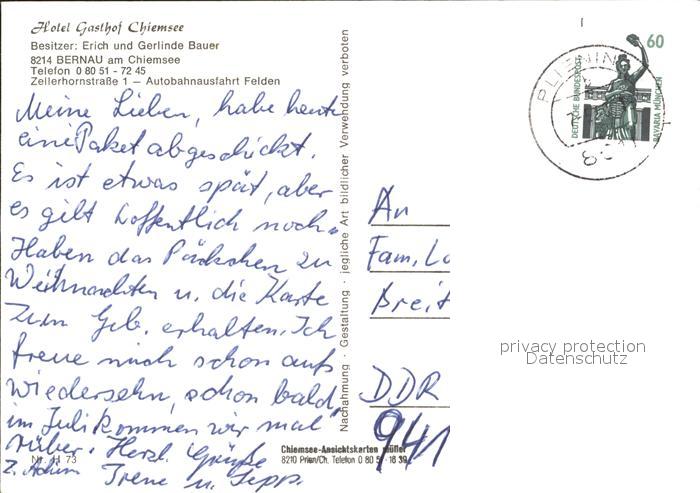 Hotel Gasthof Chiemsee
Besitzer: Erich und Gerlinde Bauer
8214 BERNAU am Chiemsee
Telefon 0 80 51 - 72 45
Zellerhornstraße 1 — Autobahnausfahrt Felden
Meine Lieben, habe heute
eine Paket abgeschickt.
Es ist etwas spät, aber
es gilt hoffentlich noch.
Haben das Päckchen zu
Weihnachten u. die Karte
zum Geb. erhalten. Ich
freue mich schon aufs
Wiedersehn, schon bald,
im Juli kommen wir mal
rüber. Herzl. Grüße
Irene u. Sepp.
Nr. H 73
Nachahmung · Gestaltung · jegliche Art bildlicher Verwendung verboten
Chiemsee-Ansichtskarten müller
8210 Prien/Ch. Telefon 0 80 51 - 16 39
60
DEUTSCHE BUNDESPOST
BAVARIA MÜNCHEN
An
Fam. Lo
Breit
DDR
941
privacy protection
Datenschutz